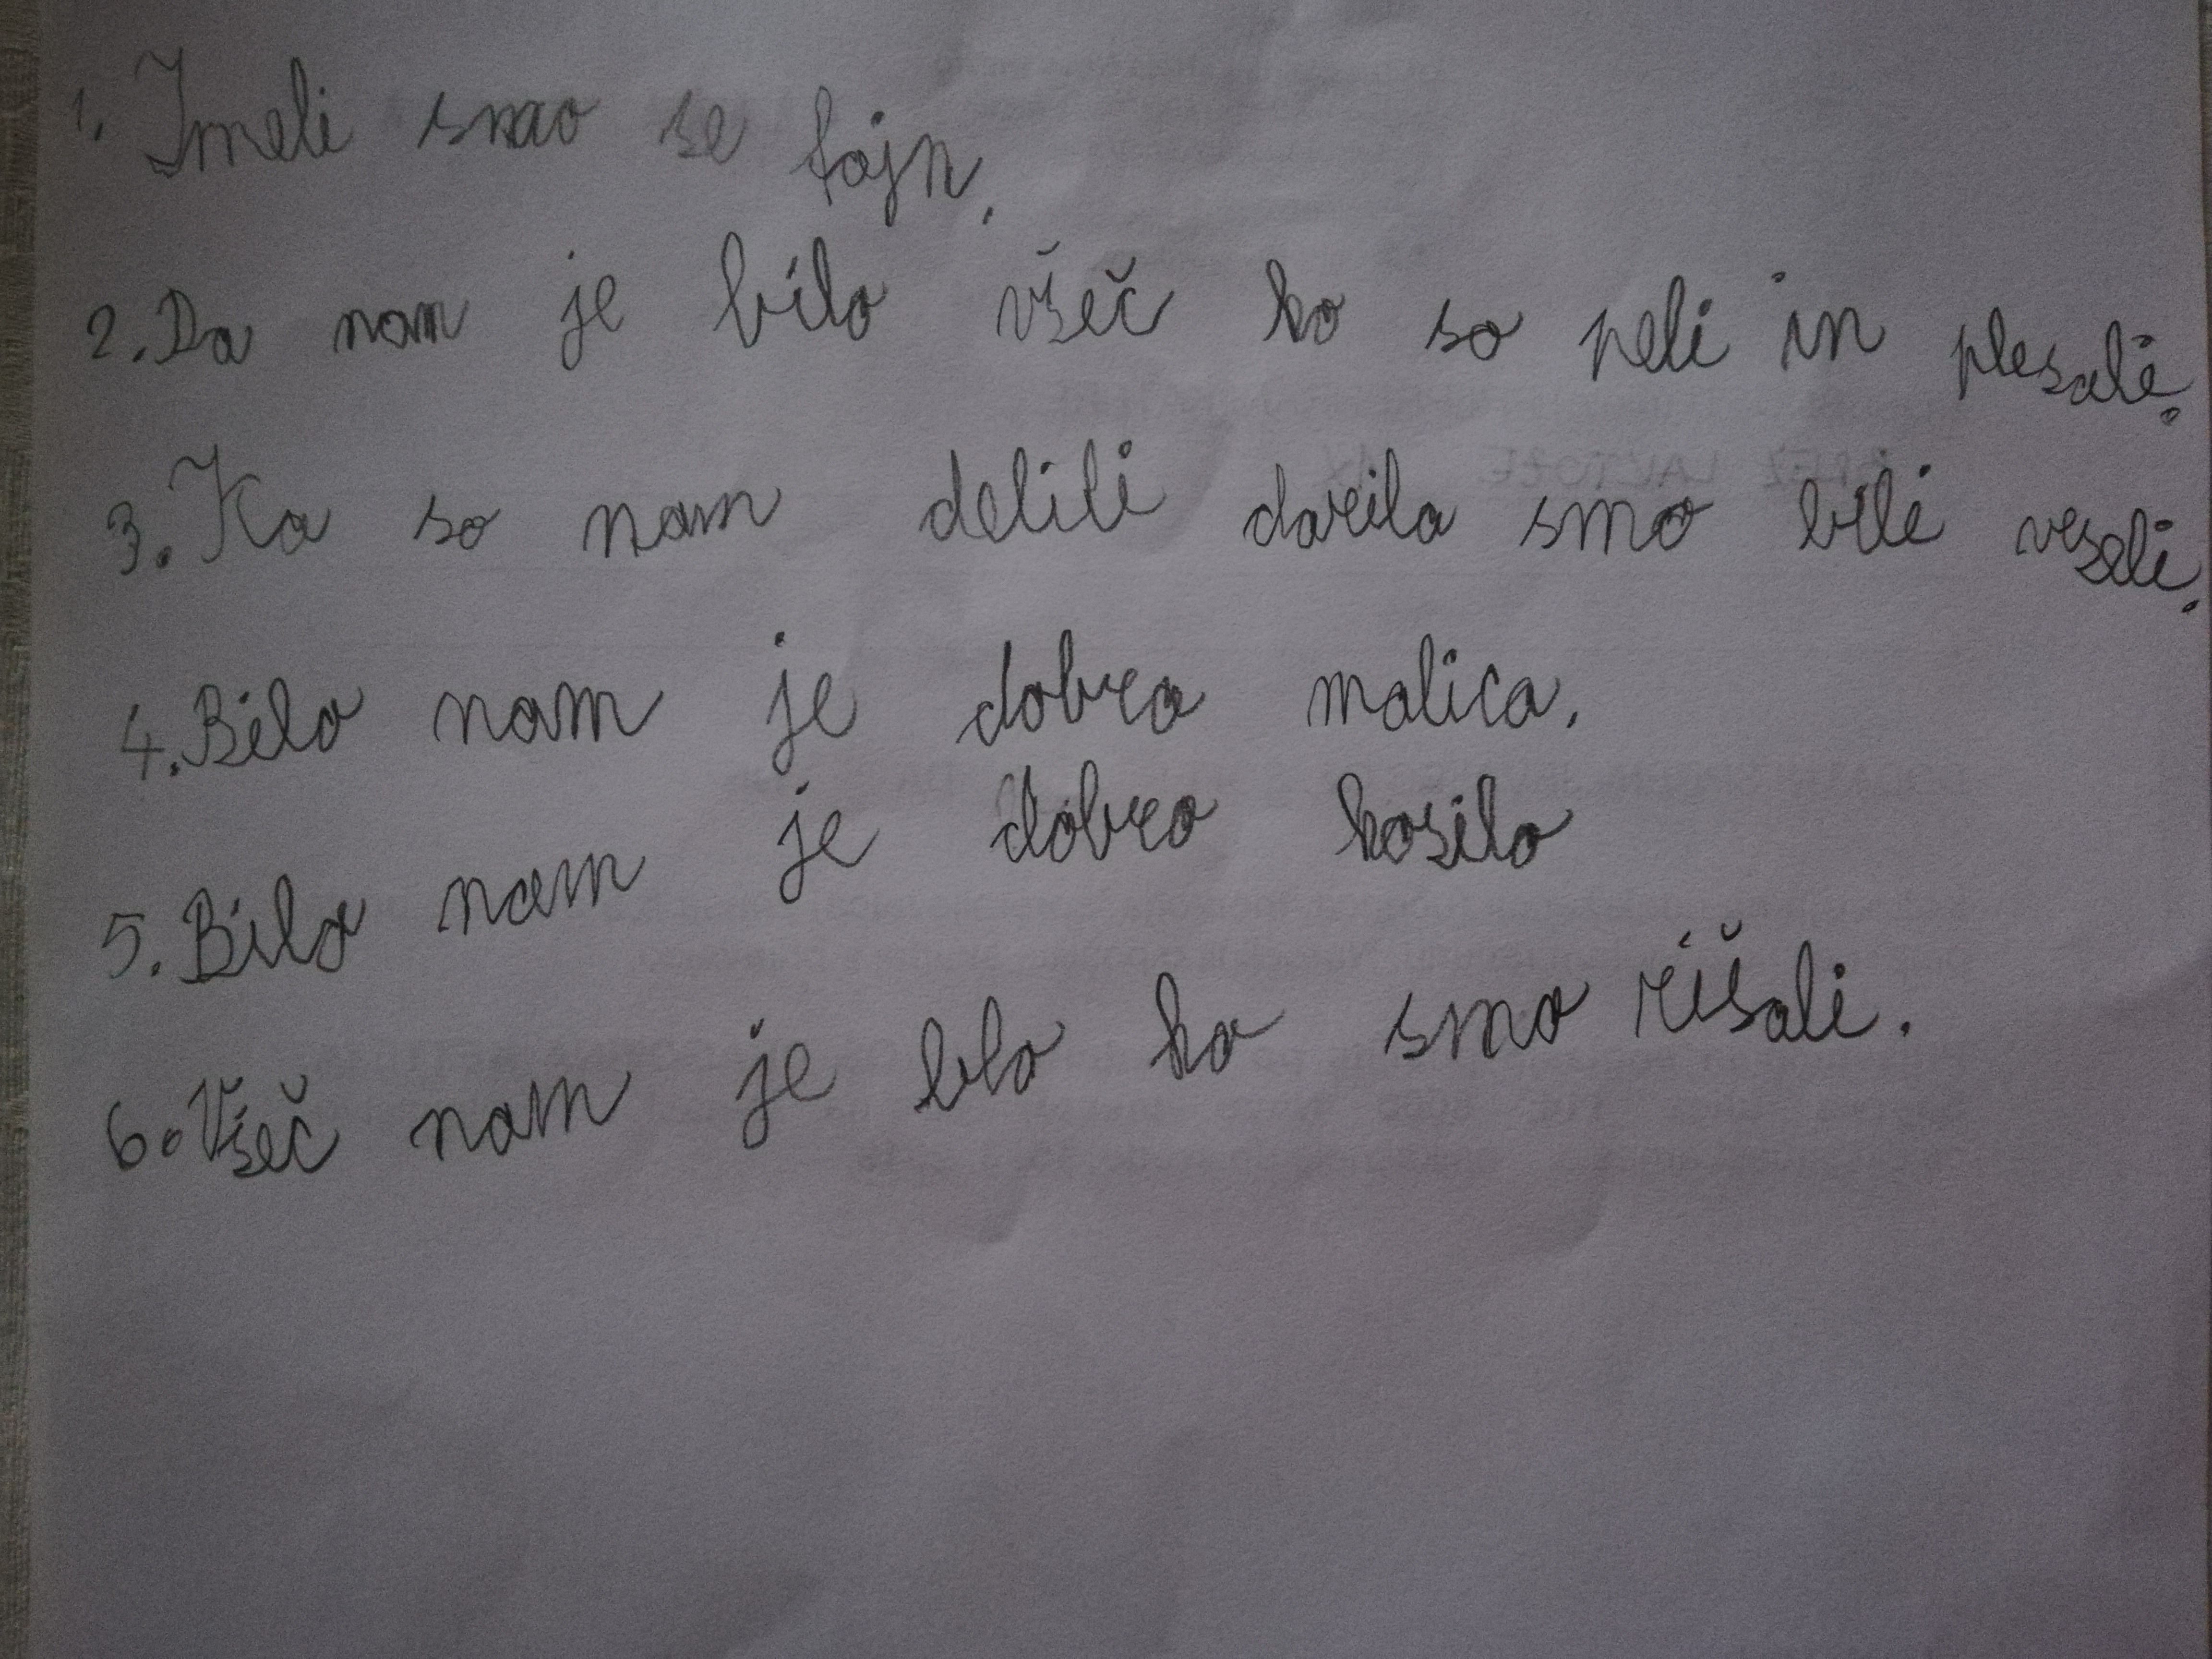 1. Imeli smo se fajn.
2. Da nam je bilo všeč ko so peli in plesali.
3. Ko so nam delili darila smo bili veseli.
4. Bilo nam je dobro malica.
5. Bilo nam je dobro kosilo
6. Všeč nam je blo ko smo rišali.